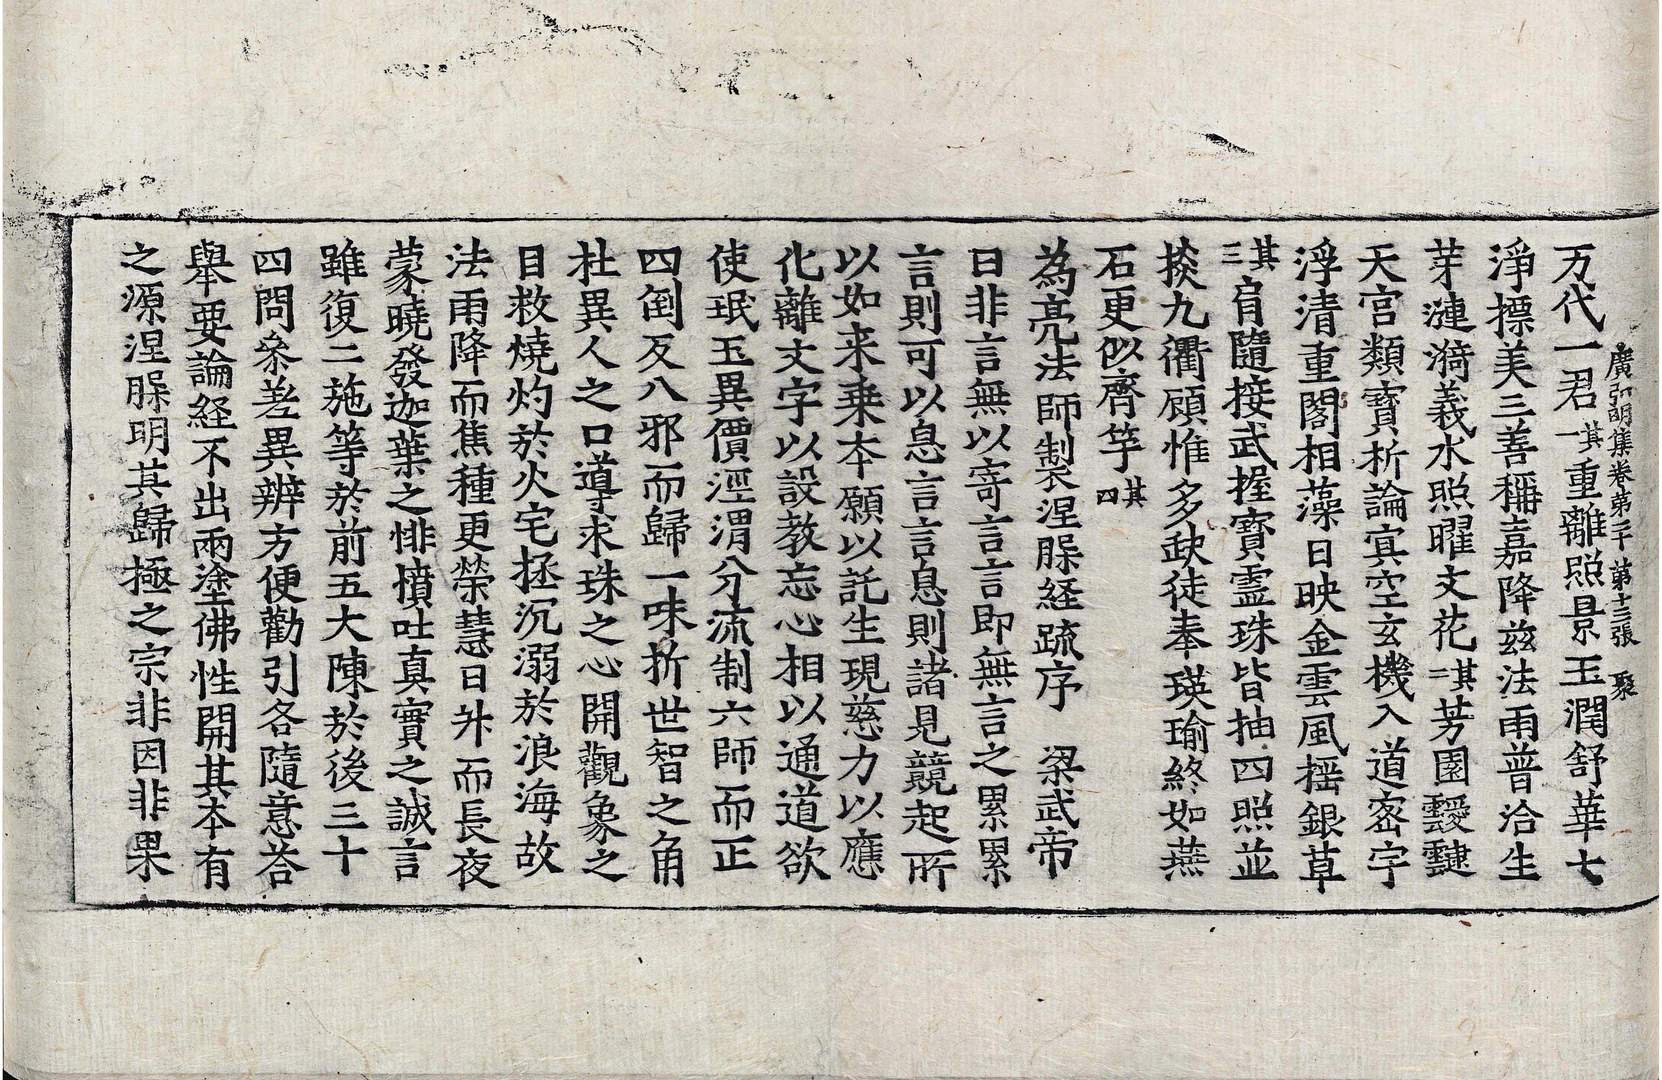 廣弘明集卷第二十 第十三張 聚
万代一君其一重離照景玉潤舒華七
淨摽美三善稱嘉降茲法雨普洽生
芽漣漪義水照曜文花其二芳園靉靆
天宮類寶析論冥空玄機入道密字
浮清重閣相藻日映金雲風揺銀草
其三肓隨接武握寳靈珠皆抽四照並
掞九衢顧惟多缺徒奉瑛瑜終如燕
石更似齊竽其四
為亮法師製涅槃経疏序 梁武帝
曰非言無以寄言言即無言之累累
言則可以息言言息則諸見競起所
以如来乗本願以託生現慈力以應
化離文字以設教忘心相以通道欲
使珉玉異價涇渭分流制六師而正
四倒反八邪而歸一味折世智之角
杜異人之口導求珠之心開觀象之
目救燒灼於火宅拯沉溺於浪海故
法雨降而焦種更榮慧日升而長夜
蒙曉發迦葉之悱憤吐真實之誠言
雖復二施等於前五大陳於後三十
四問參差異辨方便勸引各隨意荅
舉要論経不出兩塗佛性開其本有
之源涅槃明其歸極之宗非因非果